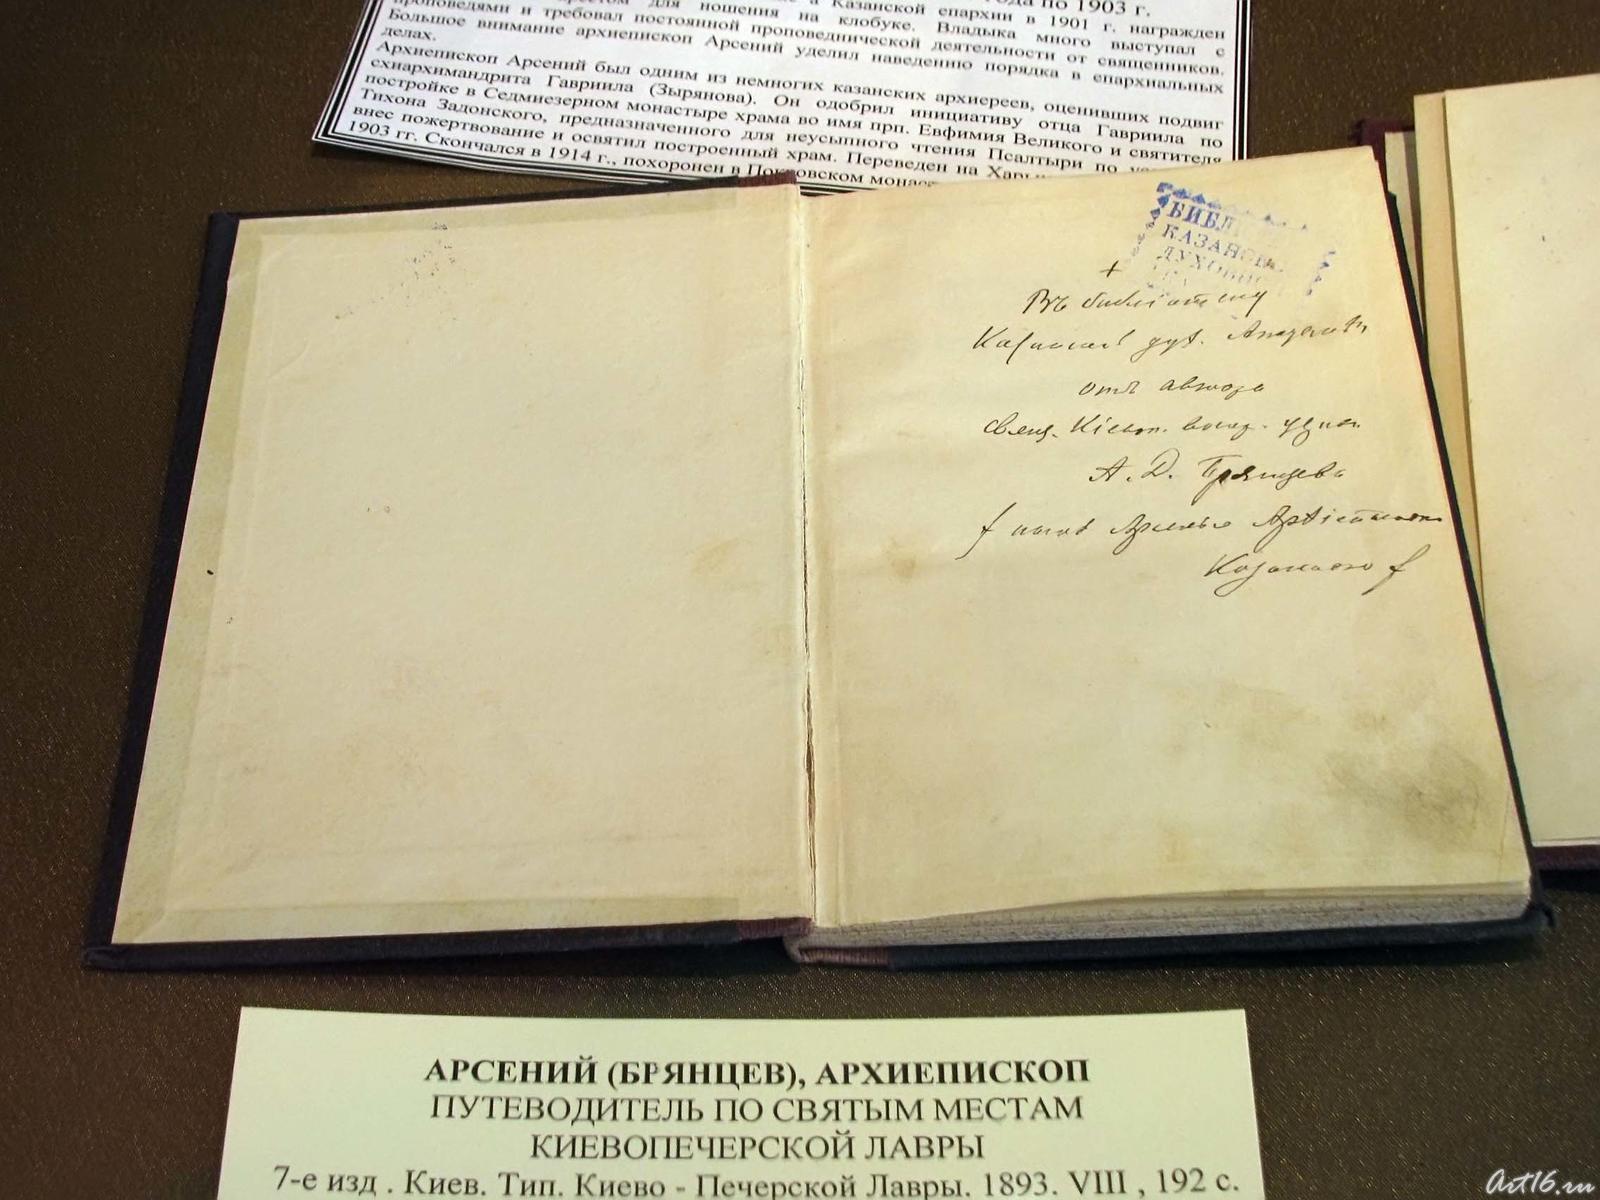 по 1903 г.
Казанской епархии в 1901 г. награжден
крестом для ношения на клобуке. Владыка много выступал с
проповедями и требовал постоянной проповеднической деятельности от священников.
Большое внимание архиепископ Арсений уделил наведению порядка в епархиальных
делах.
Архиепископ Арсений был одним из немногих казанских архиереев, оценивших подвиг
схиархимандрита Гавриила (Зырянова). Он одобрил инициативу отца Гавриила по
постройке в Седмиезерном монастыре храма во имя прп. Евфимия Великого и святителя
Тихона Задонского, предназначенного для неусыпного чтения Псалтыри по
внес пожертвование и освятил построенный храм. Переведен на
1903 гг. Скончался в 1914 г., похоронен в Покровском
КАЗАНСК
ДУХОВН
+
Въ библіотеку
Казанской дух. Академіи
отъ автора
свящ. Кіевоп.
А. Д. Брянцева
Арсенія Архіепископа
Казанскаго
АРСЕНИЙ (БРЯНЦЕВ), АРХИЕПИСКОП
ПУТЕВОДИТЕЛЬ ПО СВЯТЫМ МЕСТАМ
КИЕВОПЕЧЕРСКОЙ ЛАВРЫ
7-е изд . Киев. Тип. Киево - Печерской Лавры. 1893. VIII , 192 с.
Art16.ru